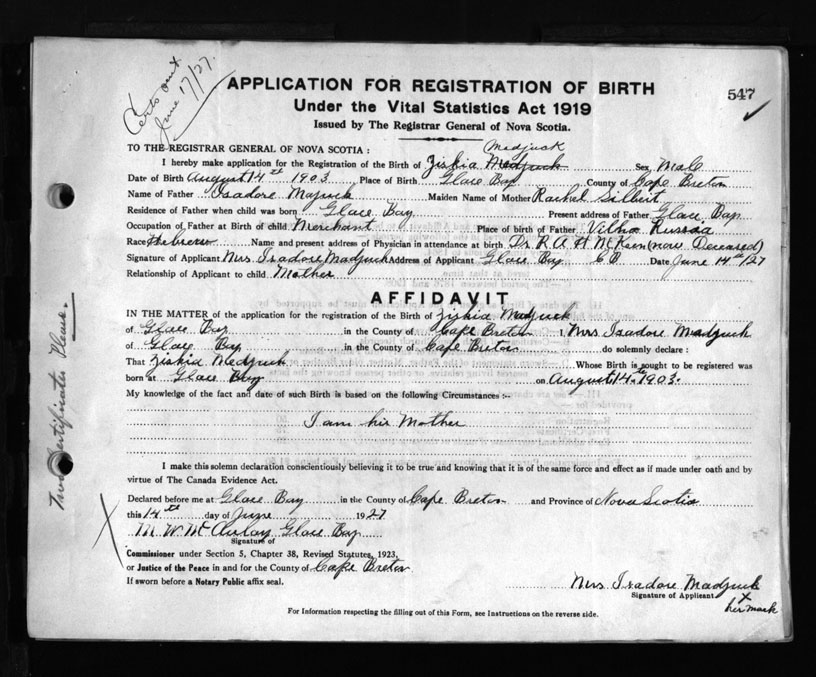 Certs sent
June 17/27.
APPLICATION FOR REGISTRATION OF BIRTH
547
Under the Vital Statistics Act 1919
Issued by The Registrar General of Nova Scotia.
TO THE REGISTRAR GENERAL OF NOVA SCOTIA :
Madjuck
I hereby make application for the Registration of the Birth of Ziskia Medjuck Sex Male
Date of Birth August 14th 1903 Place of Birth Glace Bay County of Cape Breton
Name of Father Isadore Majuck Maiden Name of Mother Rachel Silbert
Residence of Father when child was born Glace Bay Present address of Father Glace Bay
Occupation of Father at Birth of child Merchant Place of birth of Father Vilna Russia
Race Hebrew Name and present address of Physician in attendance at birth Dr R. A. H. McKeen (now Deceased)
Signature of Applicant Mrs Isadore Madjuck Address of Applicant Glace Bay C B Date June 14th/27
Relationship of Applicant to child Mother
AFFIDAVIT
IN THE MATTER of the application for the registration of the Birth of Ziskia Madjuck
of Glace Bay in the County of Cape Breton I, Mrs Isadore Madjuck
of Glace Bay in the County of Cape Breton do solemnly declare :
That Ziskia Medjuck Whose Birth is sought to be registered was
born at Glace Bay on August 14th 1903.
My knowledge of the fact and date of such Birth is based on the following Circumstances :-
I am his Mother
I make this solemn declaration conscientiously believing it to be true and knowing that it is of the same force and effect as if made under oath and by
virtue of The Canada Evidence Act.
Declared before me at Glace Bay in the County of Cape Breton and Province of Nova Scotia
this 14th day of June 1927
M. W. McAulay Glace Bay
Signature of
Commissioner under Section 5, Chapter 38, Revised Statutes, 1923,
or Justice of the Peace in and for the County of Cape Breton
If sworn before a Notary Public affix seal.
Mrs Isadore Madjuck
Signature of Applicant
X
her mark
For Information respecting the filling out of this Form, see Instructions on the reverse side.
Two Certificates Please.